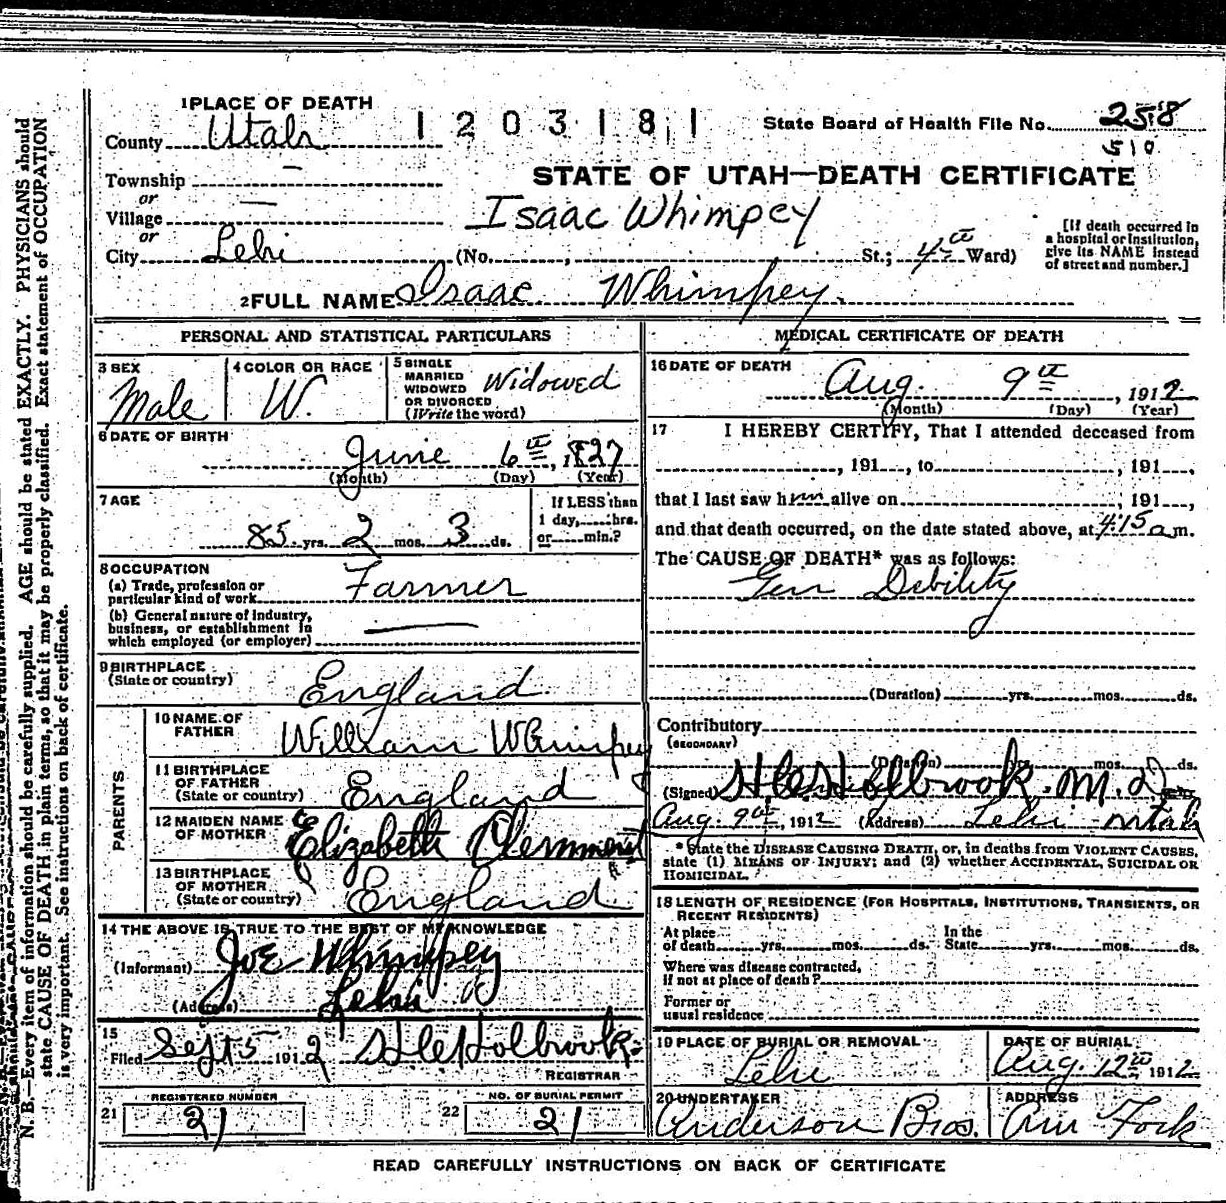 1 PLACE OF DEATH
County Utah
1203181
State Board of Health File No. 258
510
Township —
or
Village —
or
City Lehi
STATE OF UTAH—DEATH CERTIFICATE
Isaac Whimpey
(No. ; St.; 4th Ward)
[If death occurred in
a hospital or institution,
give its NAME instead
of street and number.]
2 FULL NAME Isaac Whimpey.
PERSONAL AND STATISTICAL PARTICULARS
3 SEX
Male
4 COLOR OR RACE
W.
5 SINGLE
MARRIED
WIDOWED
OR DIVORCED
(Write the word)
Widowed
6 DATE OF BIRTH
June 6th, 1827
(Month) (Day) (Year)
7 AGE
85 yrs. 2 mos. 3 ds.
If LESS than
1 day, hrs.
or min.?
8 OCCUPATION
(a) Trade, profession or
particular kind of work Farmer
(b) General nature of industry,
business, or establishment in
which employed (or employer) —
9 BIRTHPLACE
(State or country)
England
PARENTS
10 NAME OF
FATHER
William Whimpey
11 BIRTHPLACE
OF FATHER
(State or country)
England
12 MAIDEN NAME
OF MOTHER
Elizabeth
13 BIRTHPLACE
OF MOTHER
(State or country)
England
14 THE ABOVE IS TRUE TO THE BEST OF MY KNOWLEDGE
(Informant) Joe Whimpey
(Address) Lehi
15
Filed Sept 5 1912 Holbrook
REGISTRAR
REGISTERED NUMBER
21 21
NO. OF BURIAL PERMIT
22 21
MEDICAL CERTIFICATE OF DEATH
16 DATE OF DEATH
Aug. 9th, 1912
(Month) (Day) (Year)
17 I HEREBY CERTIFY, That I attended deceased from
, 191 , to , 191 ,
that I last saw him alive on , 191 ,
and that death occurred, on the date stated above, at 4:15 a.m.
The CAUSE OF DEATH* was as follows:
Gen Debility
(Duration) yrs. mos. ds.
Contributory
(SECONDARY)
(Duration) yrs. mos. ds.
(Signed) Holbrook. M.D
Aug. 9th, 1912 (Address) Lehi Utah
*State the DISEASE CAUSING DEATH, or, in deaths from VIOLENT CAUSES,
state (1) MEANS OF INJURY; and (2) whether ACCIDENTAL, SUICIDAL OR
HOMICIDAL.
18 LENGTH OF RESIDENCE (FOR HOSPITALS, INSTITUTIONS, TRANSIENTS, OR
RECENT RESIDENTS)
At place
of death yrs. mos. ds.
In the
State yrs. mos. ds.
Where was disease contracted,
if not at place of death?
Former or
usual residence
19 PLACE OF BURIAL OR REMOVAL
Lehi
DATE OF BURIAL
Aug. 12th 1912
20 UNDERTAKER
Anderson Bros.
ADDRESS
Am Fork
READ CAREFULLY INSTRUCTIONS ON BACK OF CERTIFICATE
N. B.—Every item of information should be carefully supplied. AGE should be stated EXACTLY. PHYSICIANS should
state CAUSE OF DEATH in plain terms, so that it may be properly classified. Exact statement of OCCUPATION
is very important. See instructions on back of certificate.